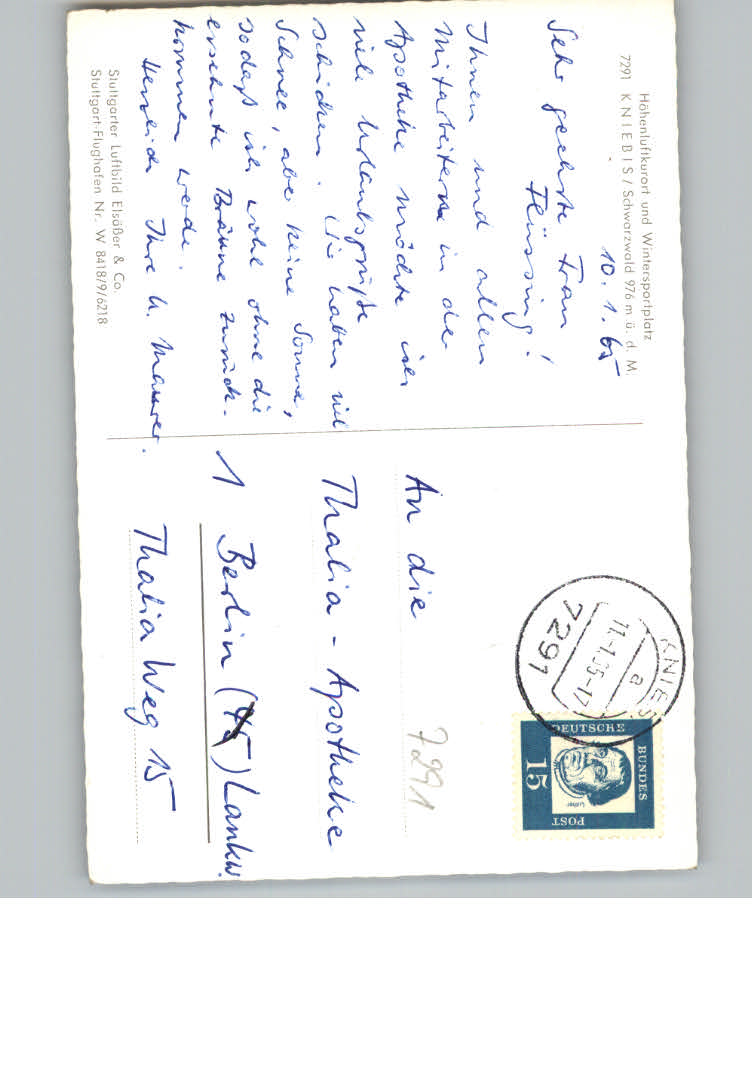 Höhenluftkurort und Wintersportplatz
7291 KNIEBIS / Schwarzwald 976 m ü. d. M.
10. 1. 65
Sehr geehrte Frau
Flüssing!
Ihnen und allen
Mitarbeitern in der
Apotheke möchte ich
viele Urlaubsgrüße
schicken. Wir haben viel
Schnee, aber keine Sonne,
sodaß ich wohl ohne die
ersehnte Bräune zurück-
kommen werde.
Herzlich Ihre U. Maurer.
Stuttgarter Luftbild Elsäßer & Co.
Stuttgart-Flughafen Nr. W 8418/9/6218
KNIEBIS
a
11.-1.65-17
7291
DEUTSCHE
BUNDES
POST
15
Luther
An die
7291
Thalia-Apotheke
1 Berlin (45) Lankw.
Thalia Weg 15